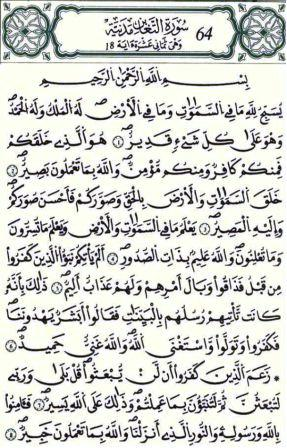 سُورَةُ التَّغَابُنِ مَدَنِيَّةٌ
64
وَهِيَ ثَمَانِي عَشْرَةَ اٰيَةً 18
بِسْمِ اللهِ الرَّحْمٰنِ الرَّحِيمِ
يُسَبِّحُ لِلّٰهِ مَا فِي السَّمٰوَاتِ وَمَا فِي الْاَرْضِۚ لَهُ الْمُلْكُ وَلَهُ الْحَمْدُۘ
وَهُوَ عَلٰى كُلِّ شَيْءٍ قَدِيرٌ ﴿١﴾ هُوَ الَّذِي خَلَقَكُمْ
فَمِنْكُمْ كَافِرٌ وَمِنْكُمْ مُؤْمِنٌۜ وَاللهُ بِمَا تَعْمَلُونَ بَصِيرٌ ﴿٢﴾
خَلَقَ السَّمٰوَاتِ وَالْاَرْضَ بِالْحَقِّ وَصَوَّرَكُمْ فَاَحْسَنَ صُوَرَكُمْۚ
وَاِلَيْهِ الْمَصِيرُ ﴿٣﴾ يَعْلَمُ مَا فِي السَّمٰوَاتِ وَالْاَرْضِ وَيَعْلَمُ مَا تُسِرُّونَ
وَمَا تُعْلِنُونَۜ وَاللهُ عَلِيمٌ بِذَاتِ الصُّدُورِ ﴿٤﴾ اَلَمْ يَأْتِكُمْ نَبَؤُا الَّذِينَ كَفَرُوا
مِنْ قَبْلُۘ فَذَاقُوا وَبَالَ اَمْرِهِمْ وَلَهُمْ عَذَابٌ اَلِيمٌ ﴿٥﴾ ذٰلِكَ بِاَنَّهُ
كَانَتْ تَأْتِيهِمْ رُسُلُهُمْ بِالْبَيِّنَاتِ فَقَالُوا اَبَشَرٌ يَهْدُونَنَاۘ
فَكَفَرُوا وَتَوَلَّوْا وَاسْتَغْنَى اللهُۜ وَاللهُ غَنِيٌّ حَمِيدٌ ﴿٦﴾
زَعَمَ الَّذِينَ كَفَرُوا اَنْ لَنْ يُبْعَثُواۜ قُلْ بَلٰى وَرَبِّي
لَتُبْعَثُنَّ ثُمَّ لَتُنَبَّؤُنَّ بِمَا عَمِلْتُمْۜ وَذٰلِكَ عَلَى اللهِ يَسِيرٌ ﴿٧﴾ فَاٰمِنُوا
بِاللهِ وَرَسُولِهِ وَالنُّورِ الَّذِي اَنْزَلْنَاۜ وَاللهُ بِمَا تَعْمَلُونَ خَبِيرٌ ﴿٨﴾